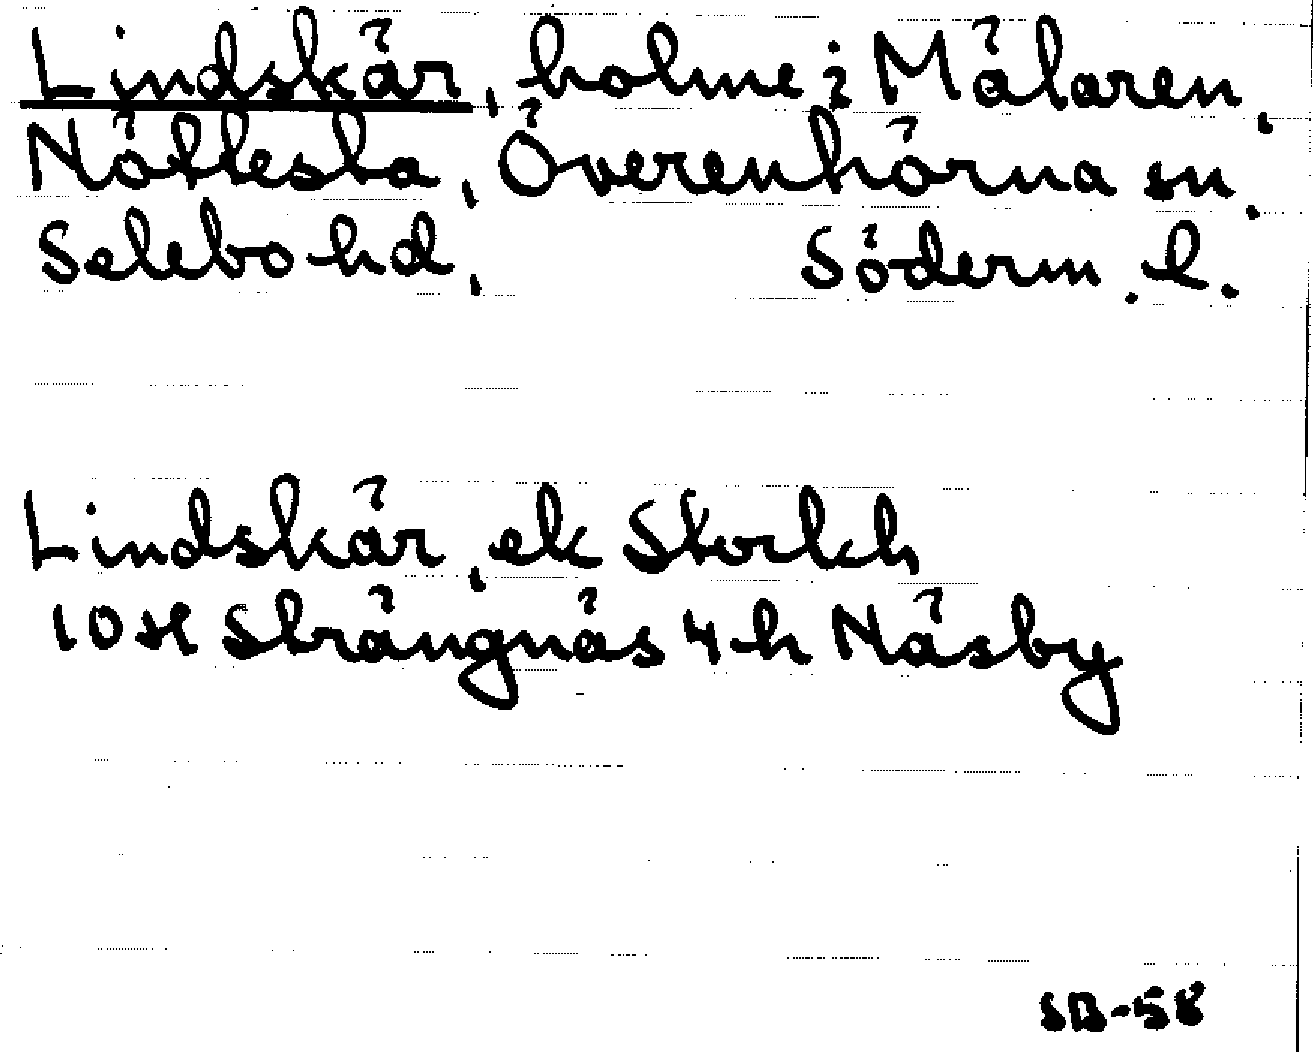 Lindskär, holme i Mälaren.
Nöttesta, Överenhörna sn.
Selebo hd, Söderm. l.
Lindskär, ek Storkh
10SH Strängnäs 4h Näsby
SB-58